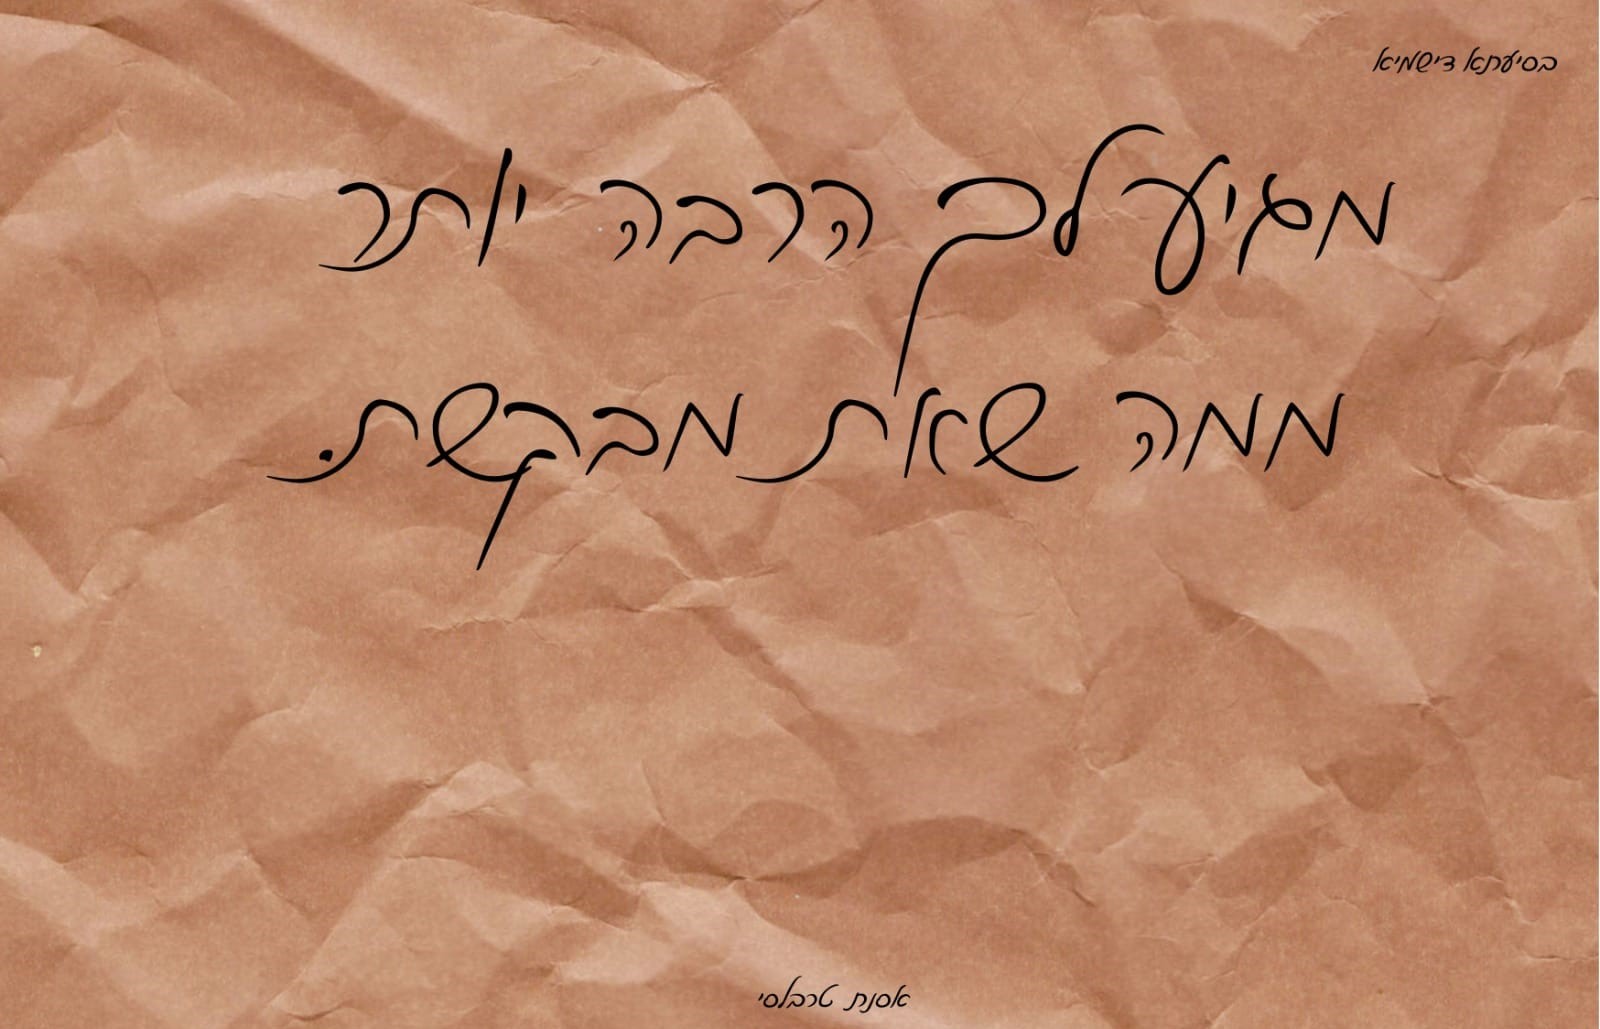 בסיעתא דישמיא
מגיע לך הרבה יותר
ממה שאת מבקשת.
אסנת טרבלסי